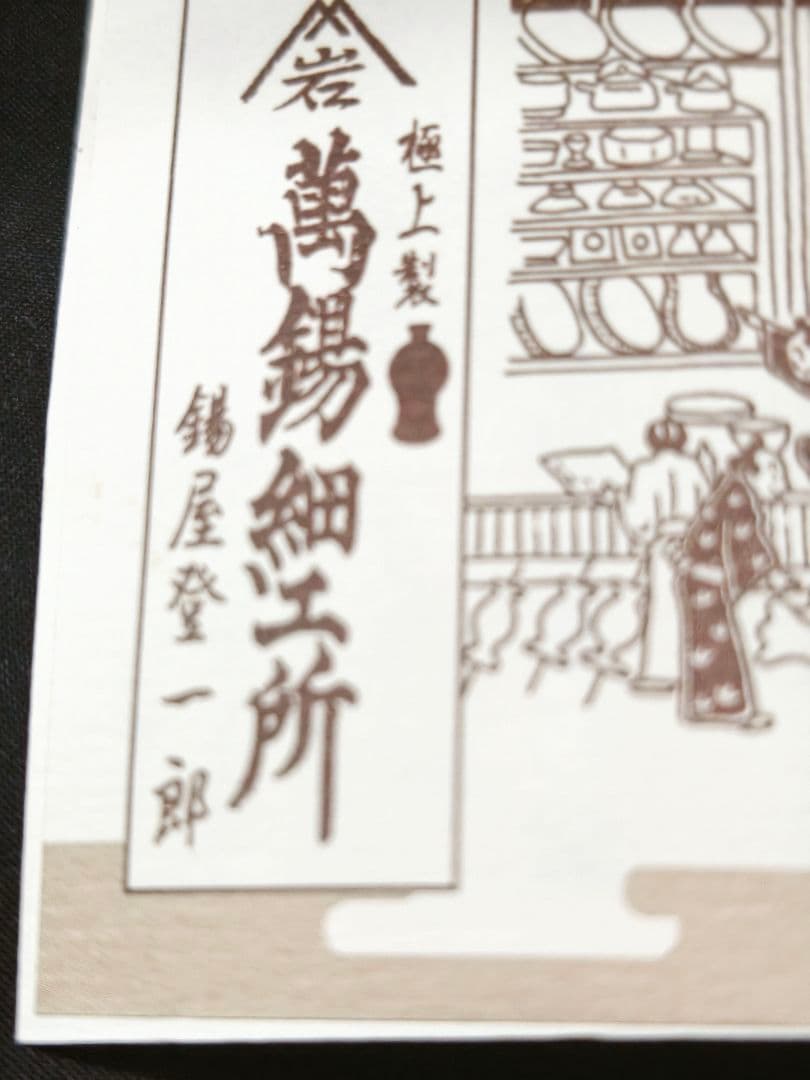 岩
極上製
萬錫細工所
錫屋登一郎